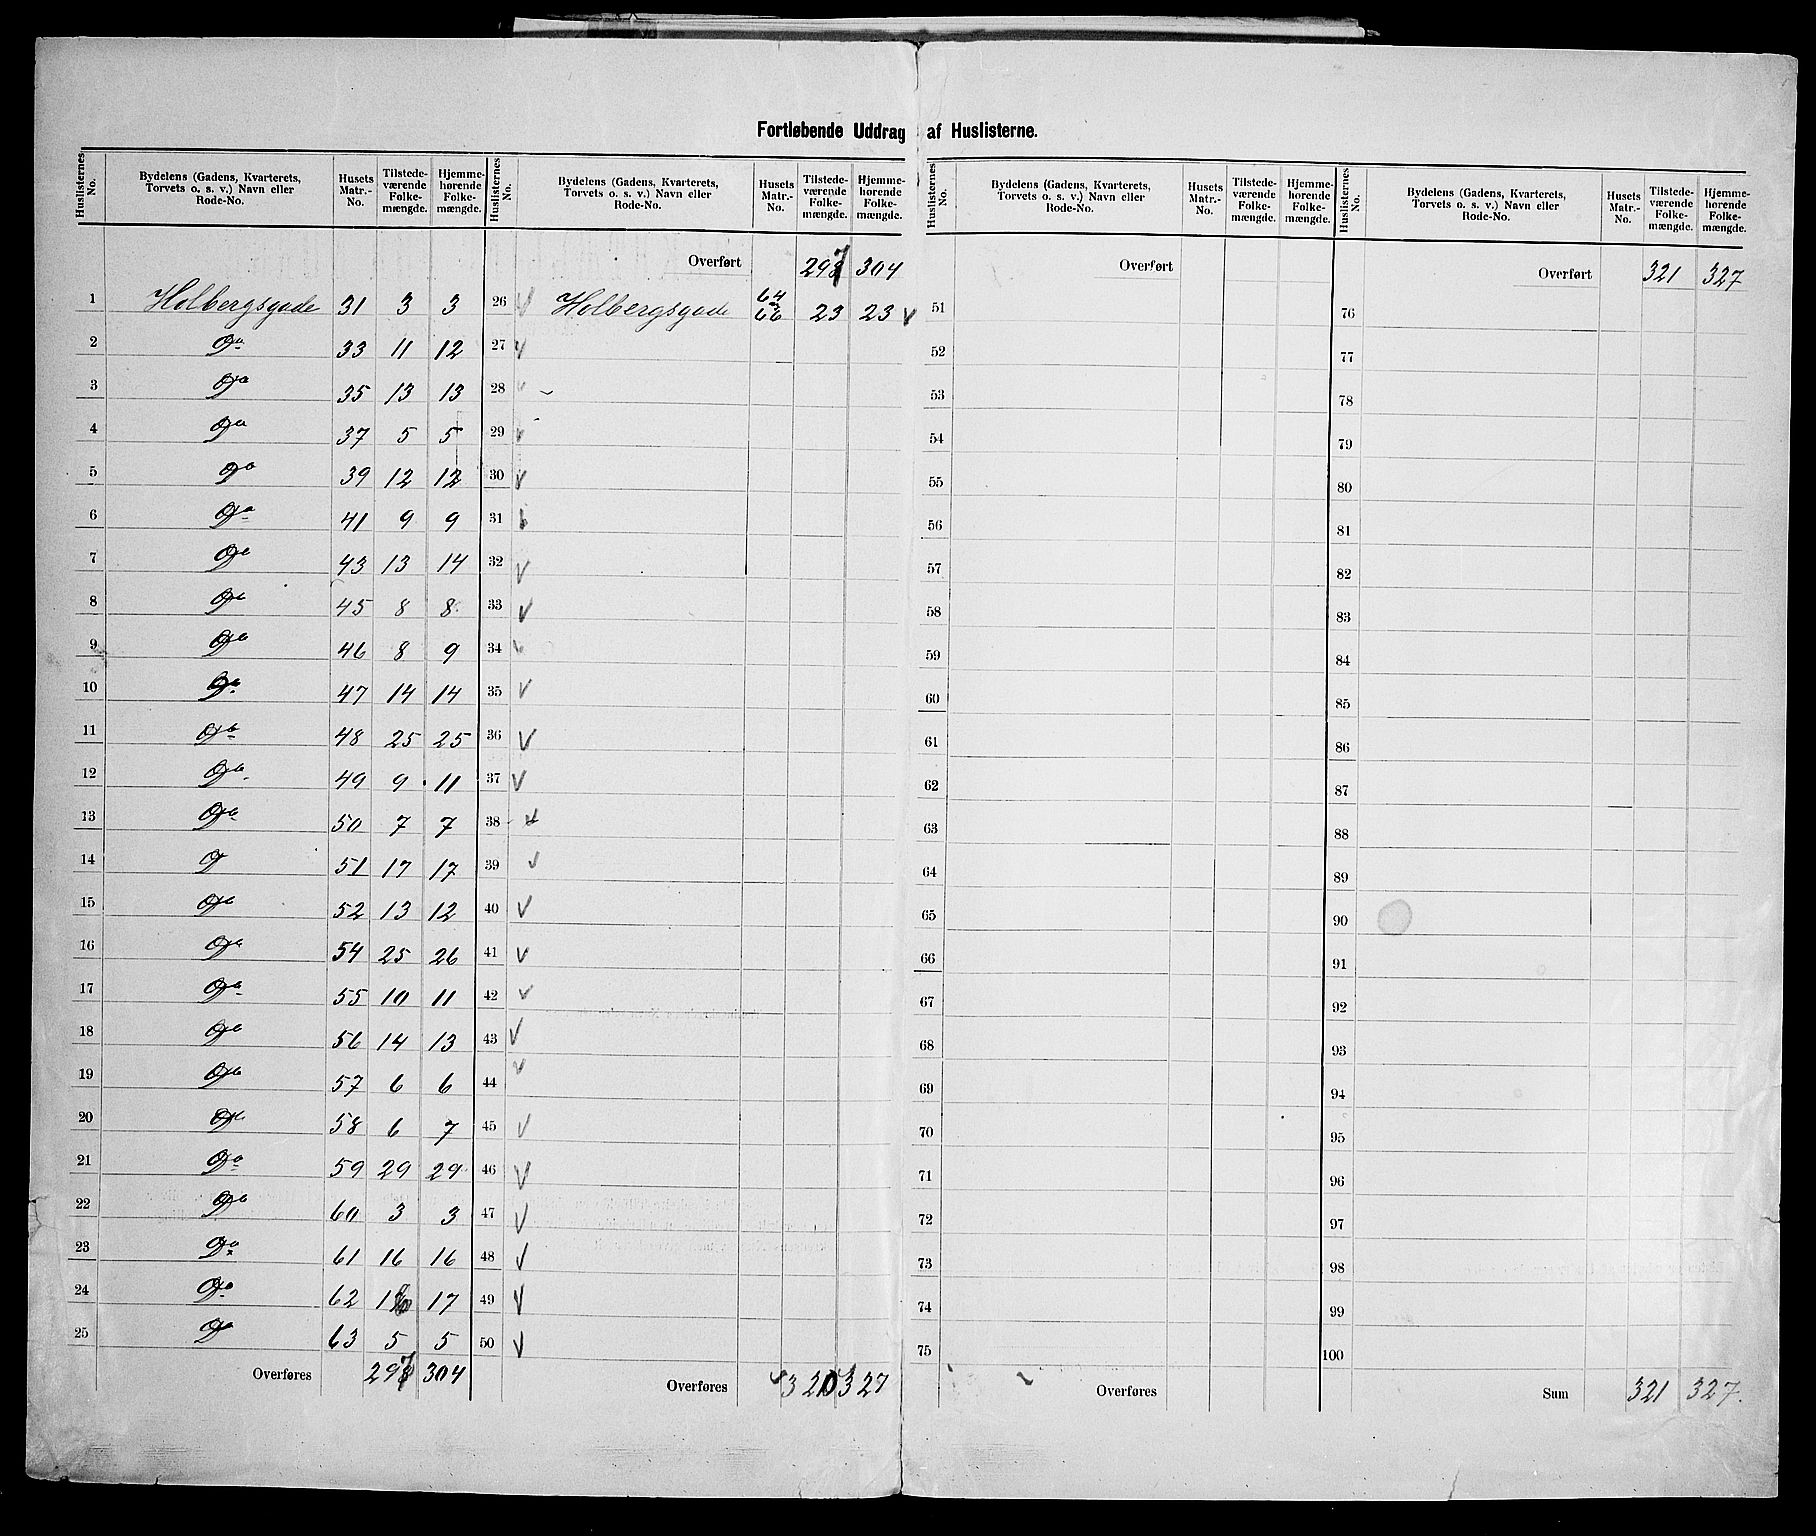 Fortløbende Uddrag af Huslisterne.
Huslisternes No. | Bydelens (Gadens, Kvarterets, Torvets o. s. v.) Navn eller Rode-No. | Husets Matr.-No. | Tilstedeværende Folkemængde. | Hjemmehørende Folkemængde.
1 Holbergsgade 31 3 3
2 Do 33 11 12
3 Do 35 13 13
4 Do 37 5 5
5 Do 39 12 12
6 Do 41 9 9
7 Do 43 13 14
8 Do 45 8 8
9 Do 46 8 9
10 Do 47 14 14
11 Do 48 25 25
12 Do 49 9 11
13 Do 50 7 7
14 D 51 17 17
15 Do 52 13 12
16 Do 54 25 26
17 Do 55 10 11
18 Do 56 14 13
19 Do 57 6 6
20 Do 58 6 7
21 Do 59 29 29
22 Do 60 3 3
23 Do 61 16 16
24 Do 62 17
25 Do 63 5 5
Overføres 297 304
Huslisternes No. | Bydelens (Gadens, Kvarterets, Torvets o. s. v.) Navn eller Rode-No. | Husets Matr.-No. | Tilstedeværende Folkemængde. | Hjemmehørende Folkemængde.
Overført 297 304
26 Holbergsgade 64 66 23 23
27
28
29
30
31
32
33
34
35
36
37
38
39
40
41
42
43
44
45
46
47
48
49
50
Overføres 320 327
Huslisternes No. | Bydelens (Gadens, Kvarterets, Torvets o. s. v.) Navn eller Rode-No. | Husets Matr.-No. | Tilstedeværende Folkemængde. | Hjemmehørende Folkemængde.
Overført
51
52
53
54
55
56
57
58
59
60
61
62
63
64
65
66
67
68
69
70
71
72
73
74
75
Overføres
Huslisternes No. | Bydelens (Gadens, Kvarterets, Torvets o. s. v.) Navn eller Rode-No. | Husets Matr.-No. | Tilstedeværende Folkemængde. | Hjemmehørende Folkemængde.
Overført 321 327
76
77
78
79
80
81
82
83
84
85
86
87
88
89
90
91
92
93
94
95
96
97
98
99
100
Sum 321 327.